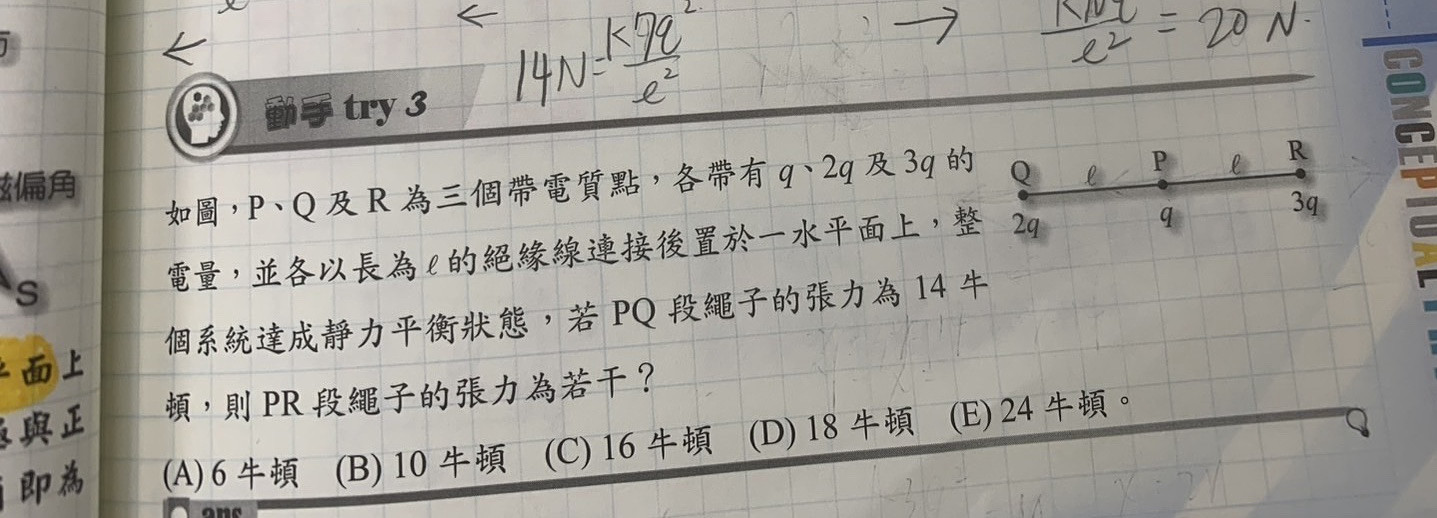 14N = k7q² / ℓ²
= 20 N.
動手 try 3
如圖，P、Q 及 R 為三個帶電質點，各帶有 q、2q 及 3q 的
電量，並各以長為 ℓ 的絕緣線連接後置於一水平面上，整
個系統達成靜力平衡狀態，若 PQ 段繩子的張力為 14 牛
頓，則 PR 段繩子的張力為若干？
(A) 6 牛頓 (B) 10 牛頓 (C) 16 牛頓 (D) 18 牛頓 (E) 24 牛頓。
Q ℓ P ℓ R
2q q 3q
ans
磁偏角
S
面上
與正
即為
CONCEPTUAL